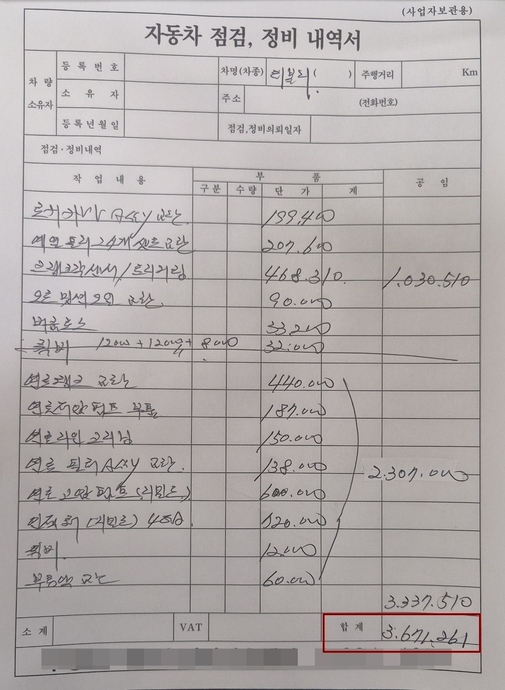 (사업자보관용)
자동차 점검, 정비 내역서
차량 소유자 등록번호 차명(차종) ( ) 주행거리 Km
소유자 주소 (전화번호)
등록년월일 점검,정비의뢰일자
점검·정비내역
작업내용 부품 공임
구분 수량 단가 계
로커카바 ASSY 교환 199,400
예열 플러그 4개 셋트 교환 207,600
크랭크각센서/트리거링 468,310 1,030,510
오토 밋션오일 교환 90,000
33,200
퀵비 12000 + 12000 + 8,000 32,000
연료탱크 교환 440,000
연료저압 펌프 부품 187,000
연료라인 크리닝 150,000
연료 필터 ASSY 교환 138,000 2,307,000
연료 고압펌프 (리빌드) 600,000
인젝터 (리빌드) 4 720,000
퀵비 12,000
부동액 교환 60,000
3,337,510
소계 VAT 합계 3,671,261